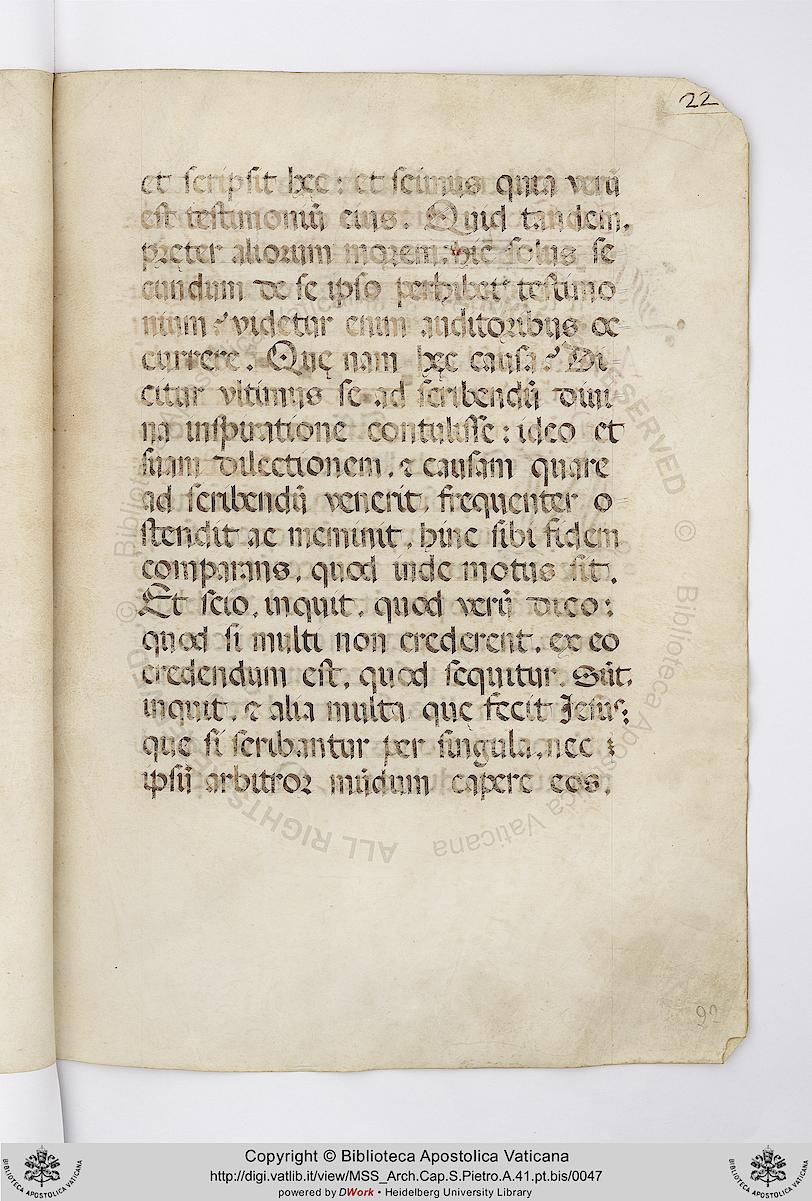 22
et scripsit hęc: et scimus quia verū
est testimoniū eius. Quid tandem,
pręter aliorum morem, hic solus se
cundum de se ipso perhibet testimo
nium? videtur enim auditoribus oc
currere. Quę nam hęc causa? Di
citur vltimus se ad scribendū diui
na inspiratione contulisse: ideo et
suam dilectionem, & causam quare
ad scribendū venerit, frequenter o
stendit ac meminit, hinc sibi fidem
comparans, quod inde motus sit.
Et scio, inquit, quod verū dico:
quod si multi non crederent, ex eo
credendum est, quod sequitur. Sūt,
inquit, & alia multa quę fecit Jesus:
que si scribantur per singula, nec
ipsū arbitror mūdum capere eos.
92
Copyright © Biblioteca Apostolica Vaticana
http://digi.vatlib.it/view/MSS_Arch.Cap.S.Pietro.A.41.pt.bis/0047
powered by DWork • Heidelberg University Library
BIBLIOTECA APOSTOLICA VATICANA
BIBLIOTECA APOSTOLICA VATICANA